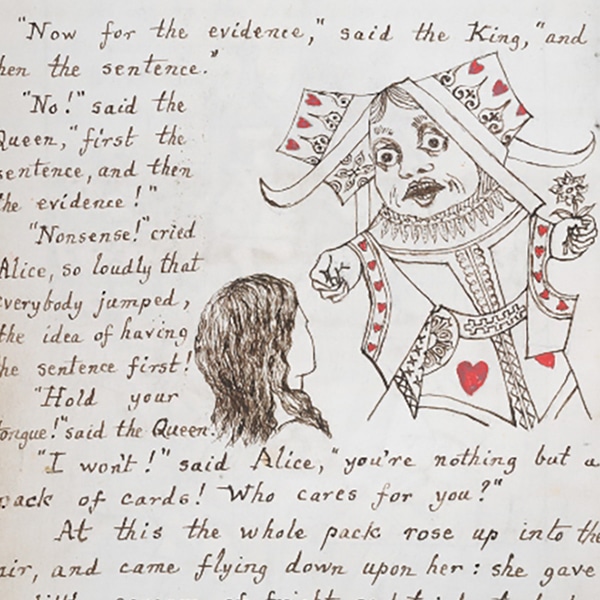 "Now for the evidence," said the King, "and
hen the sentence."
"No!" said the
Queen, "first the
sentence, and then
the evidence!"
"Nonsense!" cried
Alice, so loudly that
everybody jumped,
the idea of having
the sentence first!
"Hold your
tongue!" said the Queen.
"I won't!" said Alice, "you're nothing but a
pack of cards! Who cares for you?"
At this the whole pack rose up into the
air, and came flying down upon her: she gave